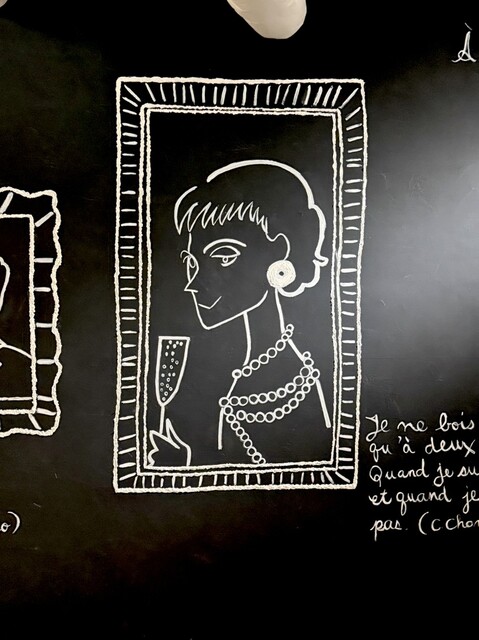 À
o)
Je ne bois
qu'à deux
Quand je su
et quand je
pas. (C Cha